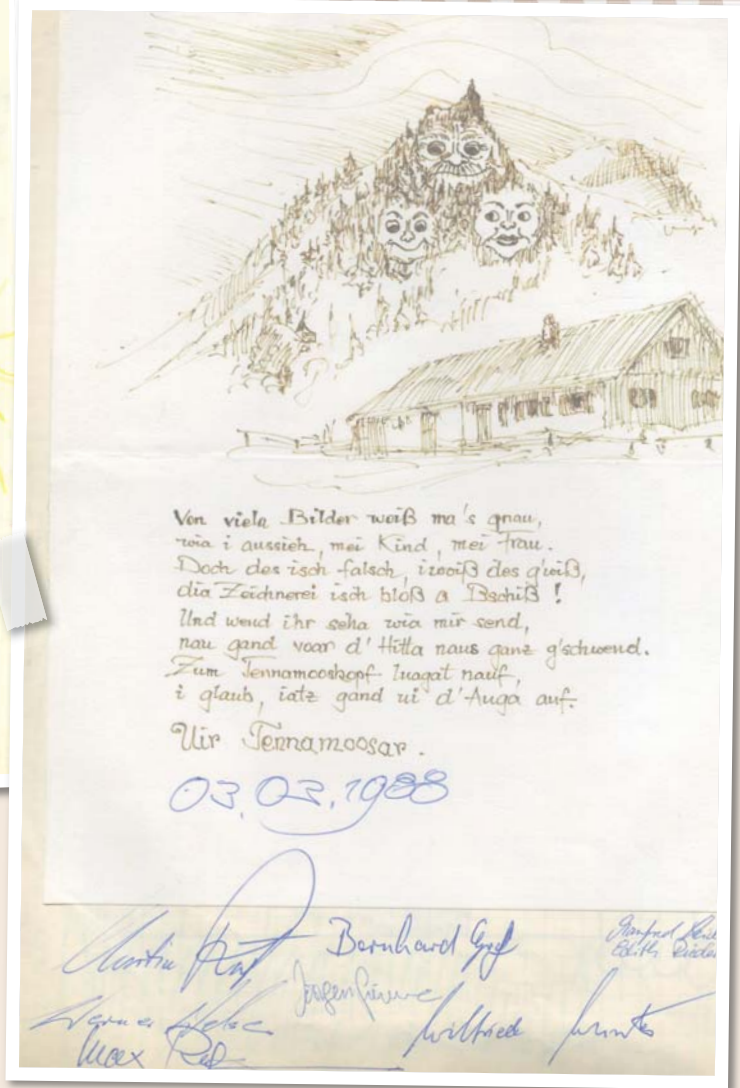 Von viela Bilder woiß ma's gnau,
wia i aussieh, mei Kind, mei Frau.
Doch des isch falsch, i woiß des g'wiß,
dia Zeichnerei isch bloß a Bschiß!
Und wend ihr seha wia mir send,
nau gand voar d'Hitta naus ganz g'schwend.
Zum Tennamooskopf luagat nauf,
i glaub, iatz gand ui d'Auga auf.
Uir Tennamoosar.
03.03.1988
Bernhard
Manfred
Edith
Werner
Max